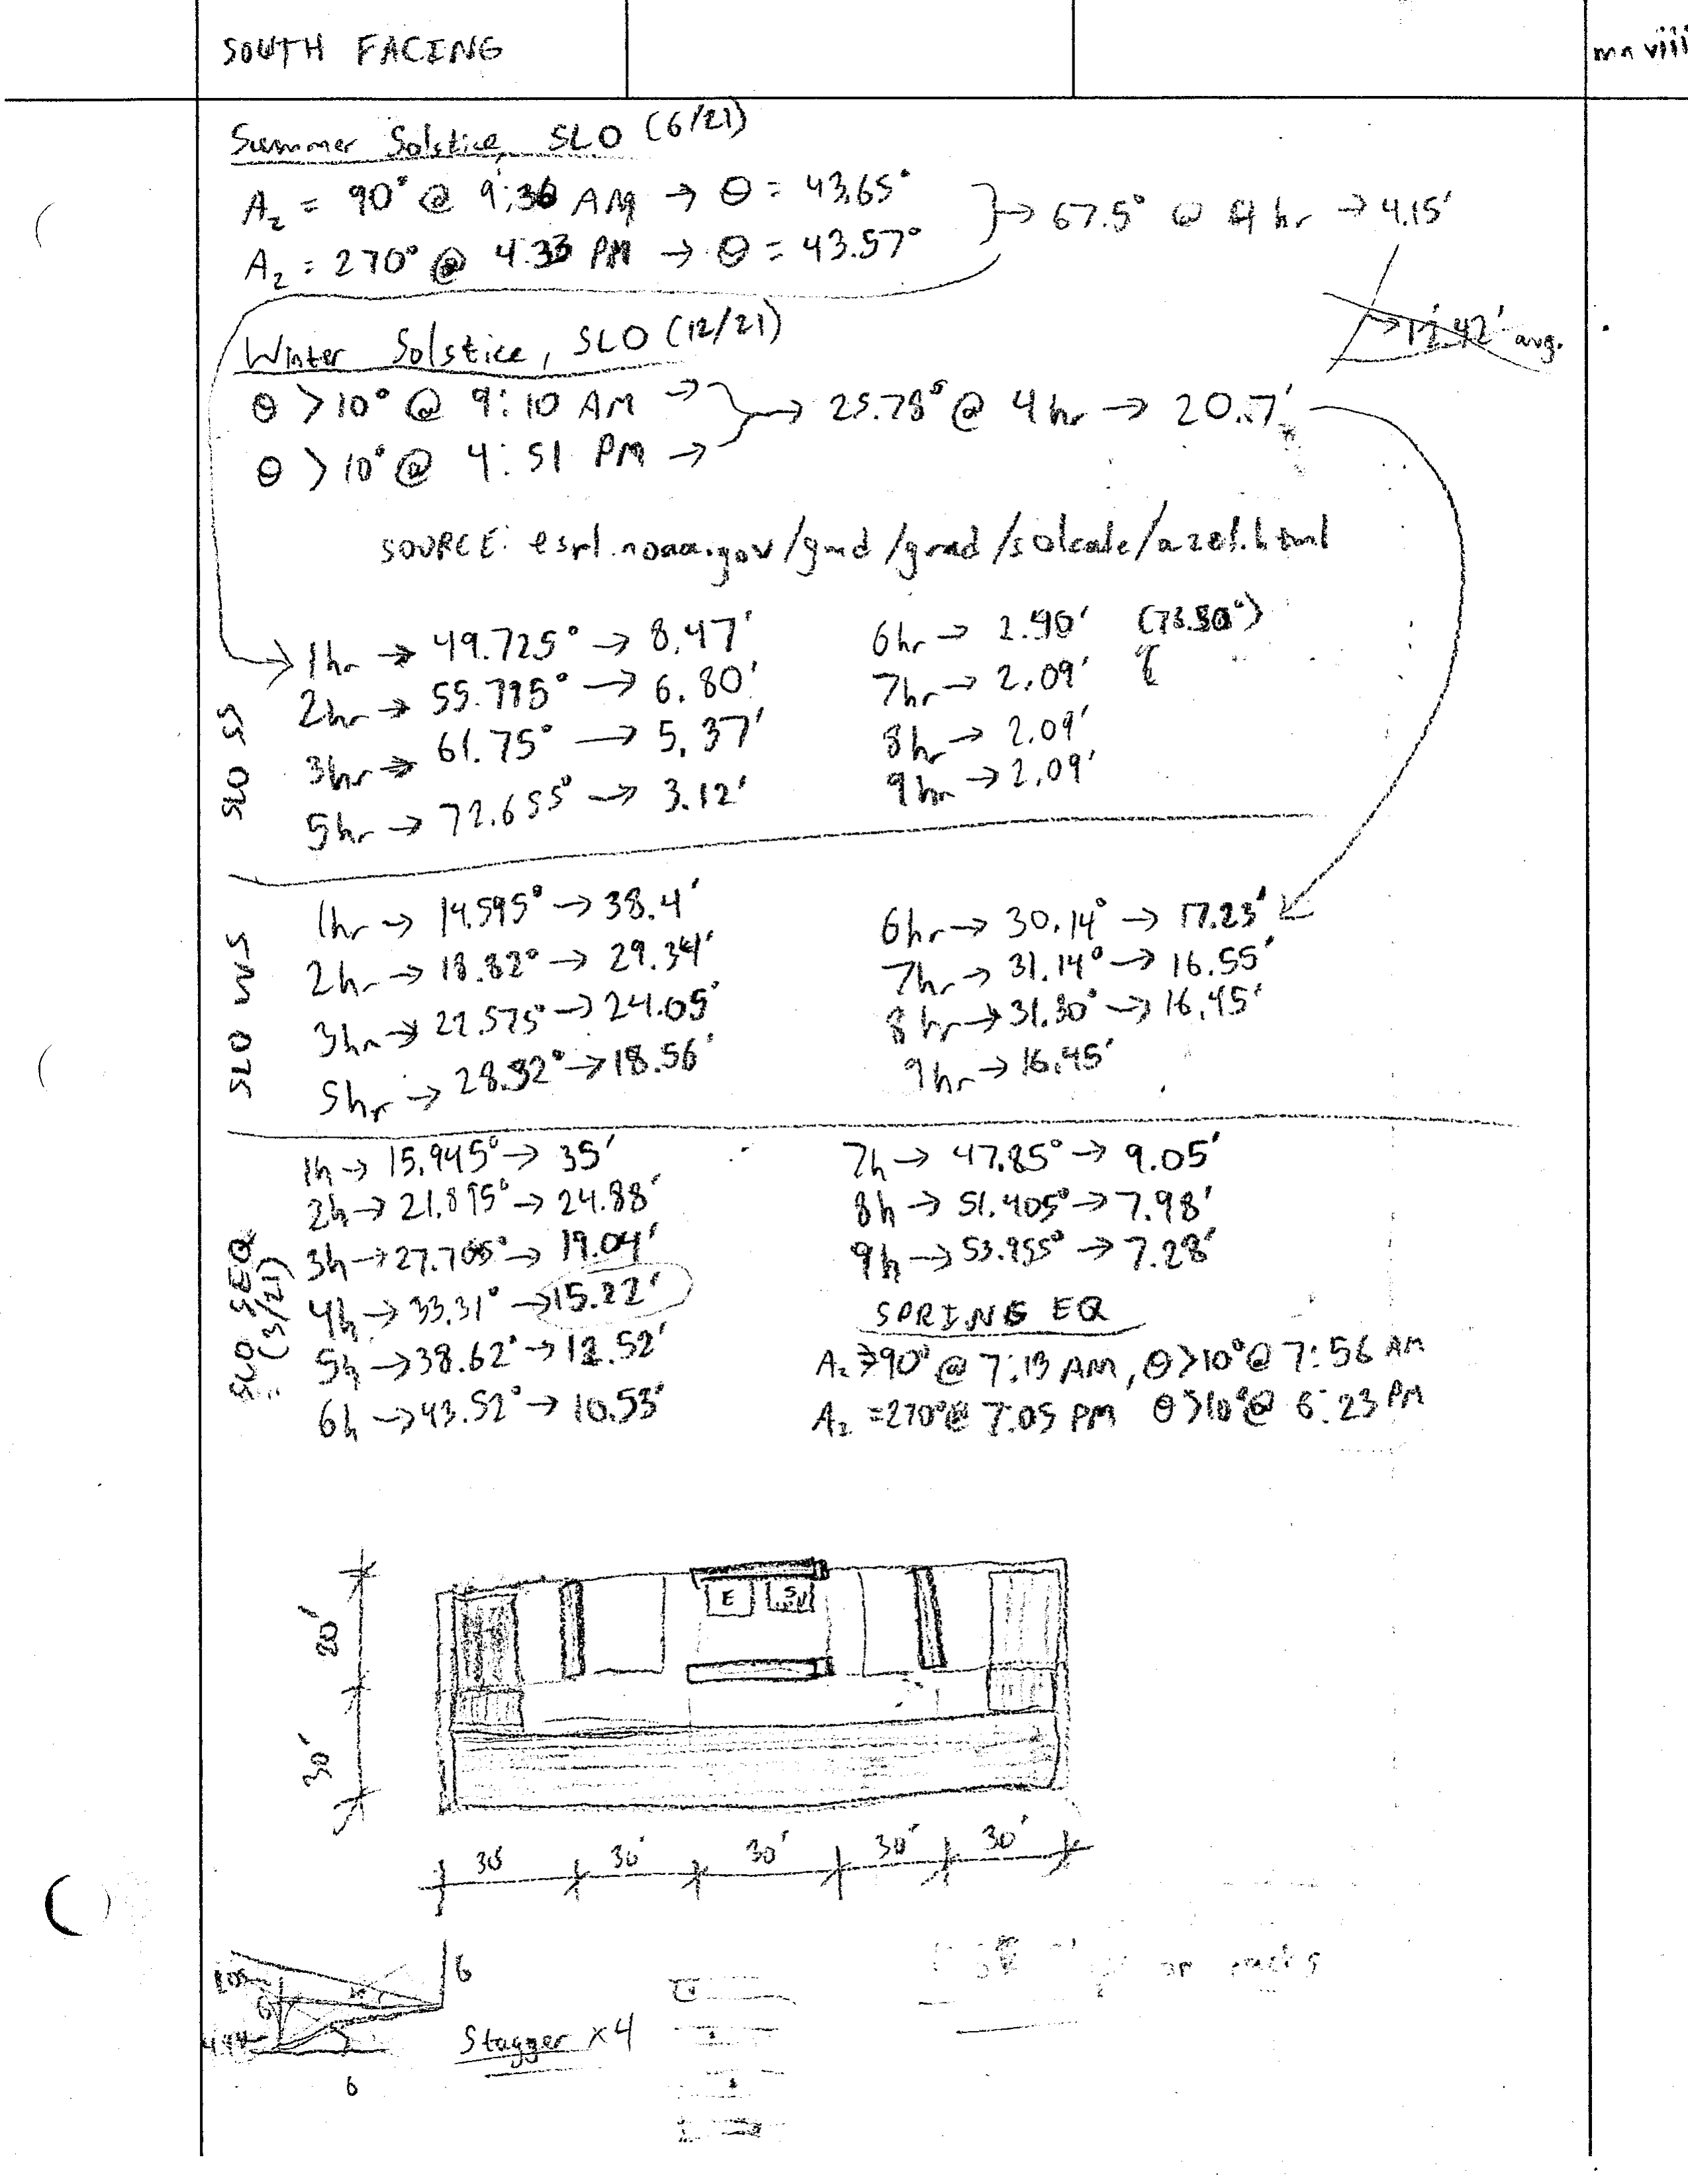 SOUTH FACING
mn viii
Summer Solstice, SLO (6/21)
Az = 90° @ 9:36 AM → θ = 43.65°
Az = 270° @ 4:33 PM → θ = 43.57°
→ 67.5° @ 4 hr → 4.15'
→ 12.42' avg.
Winter Solstice, SLO (12/21)
θ > 10° @ 9:10 AM →
θ > 10° @ 4:51 PM →
→ 25.78° @ 4 hr → 20.7'
SOURCE: esrl.noaa.gov/gmd/grad/solcalc/azel.html
SLO SS
1hr → 49.725° → 8.47'
2hr → 55.795° → 6.80'
3hr → 61.75° → 5.37'
5hr → 72.655° → 3.12'
6hr → 2.90' 
7hr → 2.09'
8hr → 2.09'
9hr → 2.09'
SLO WS
1hr → 14.595° → 38.4'
2hr → 18.82° → 29.34'
3hr → 22.575° → 24.05'
5hr → 28.32° → 18.56'
6hr → 30.14° → 17.23'
7hr → 31.14° → 16.55'
8hr → 31.30° → 16.45'
9hr → 16.45'
SLO SEQ
(3/21)
1h → 15.945° → 35'
2h → 21.895° → 24.88'
3h → 27.705° → 19.04'
4h → 33.31° → 15.22'
5h → 38.62° → 12.52'
6h → 43.52° → 10.53'
7h → 47.85° → 9.05'
8h → 51.405° → 7.98'
9h → 53.955° → 7.28'
SPRING EQ
Az > 90° @ 7:13 AM, θ > 10° @ 7:56 AM
Az = 270° @ 7:05 PM θ > 10° @ 6:23 PM
20'
30'
E
S
30' 30' 30' 30' 30'
6
6
6
Stagger x4